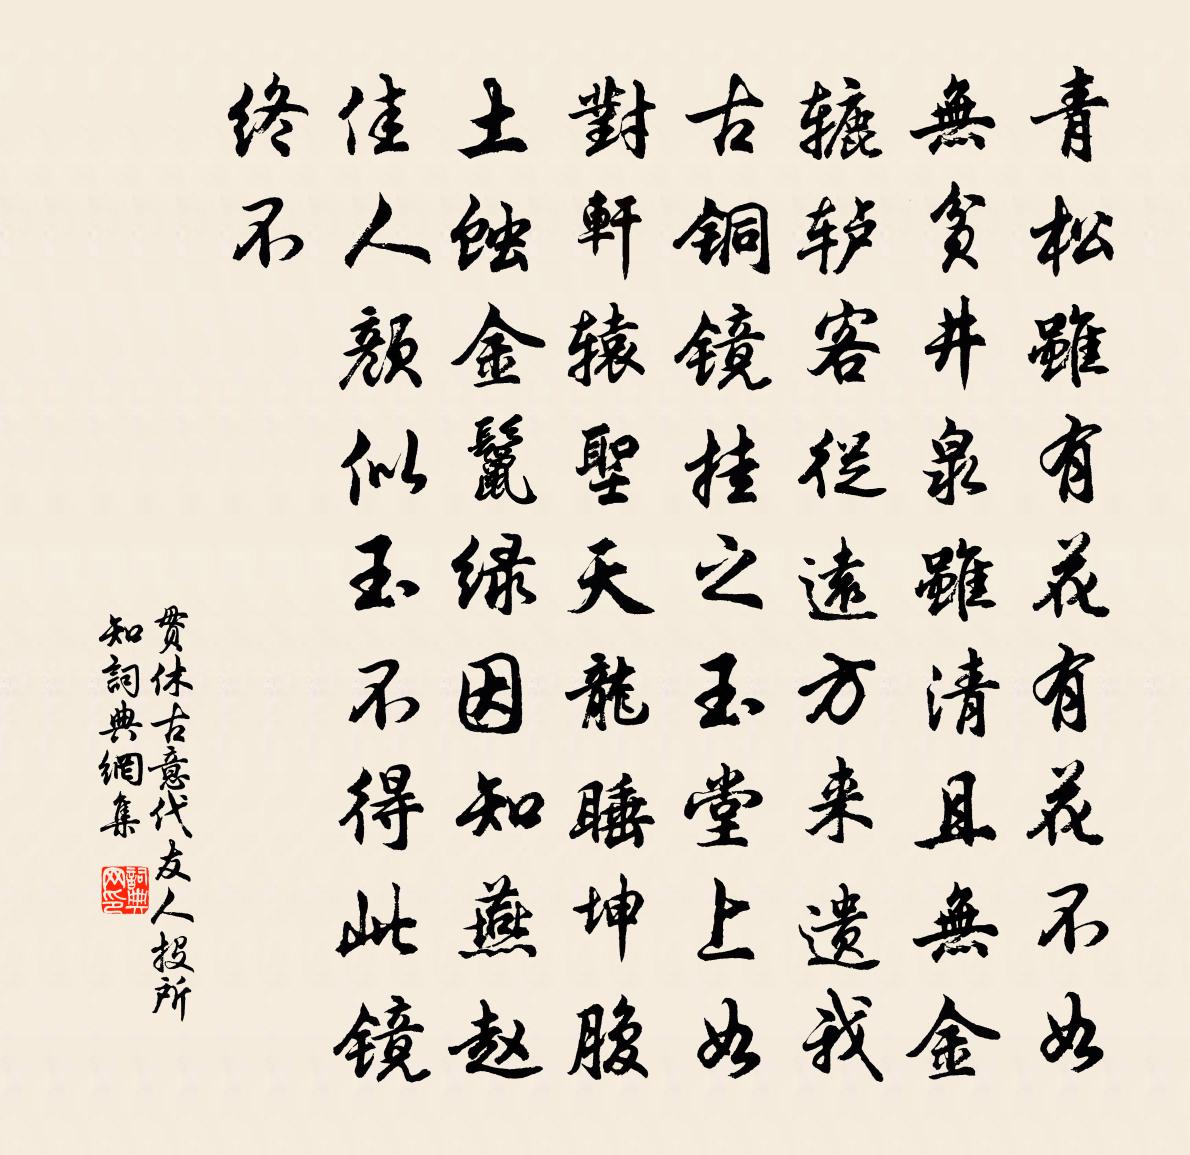 青松雖有花有花不如
無贫井泉雖清且無金
辘轳客從遠方来遗我
古铜镜挂之玉堂上如
對軒辕聖天龍睡坤腹
土蚀金鬣绿因知燕赵
佳人颜似玉不得此镜
终不
贯休古意代友人投所
知詞典網集
詞典
网印